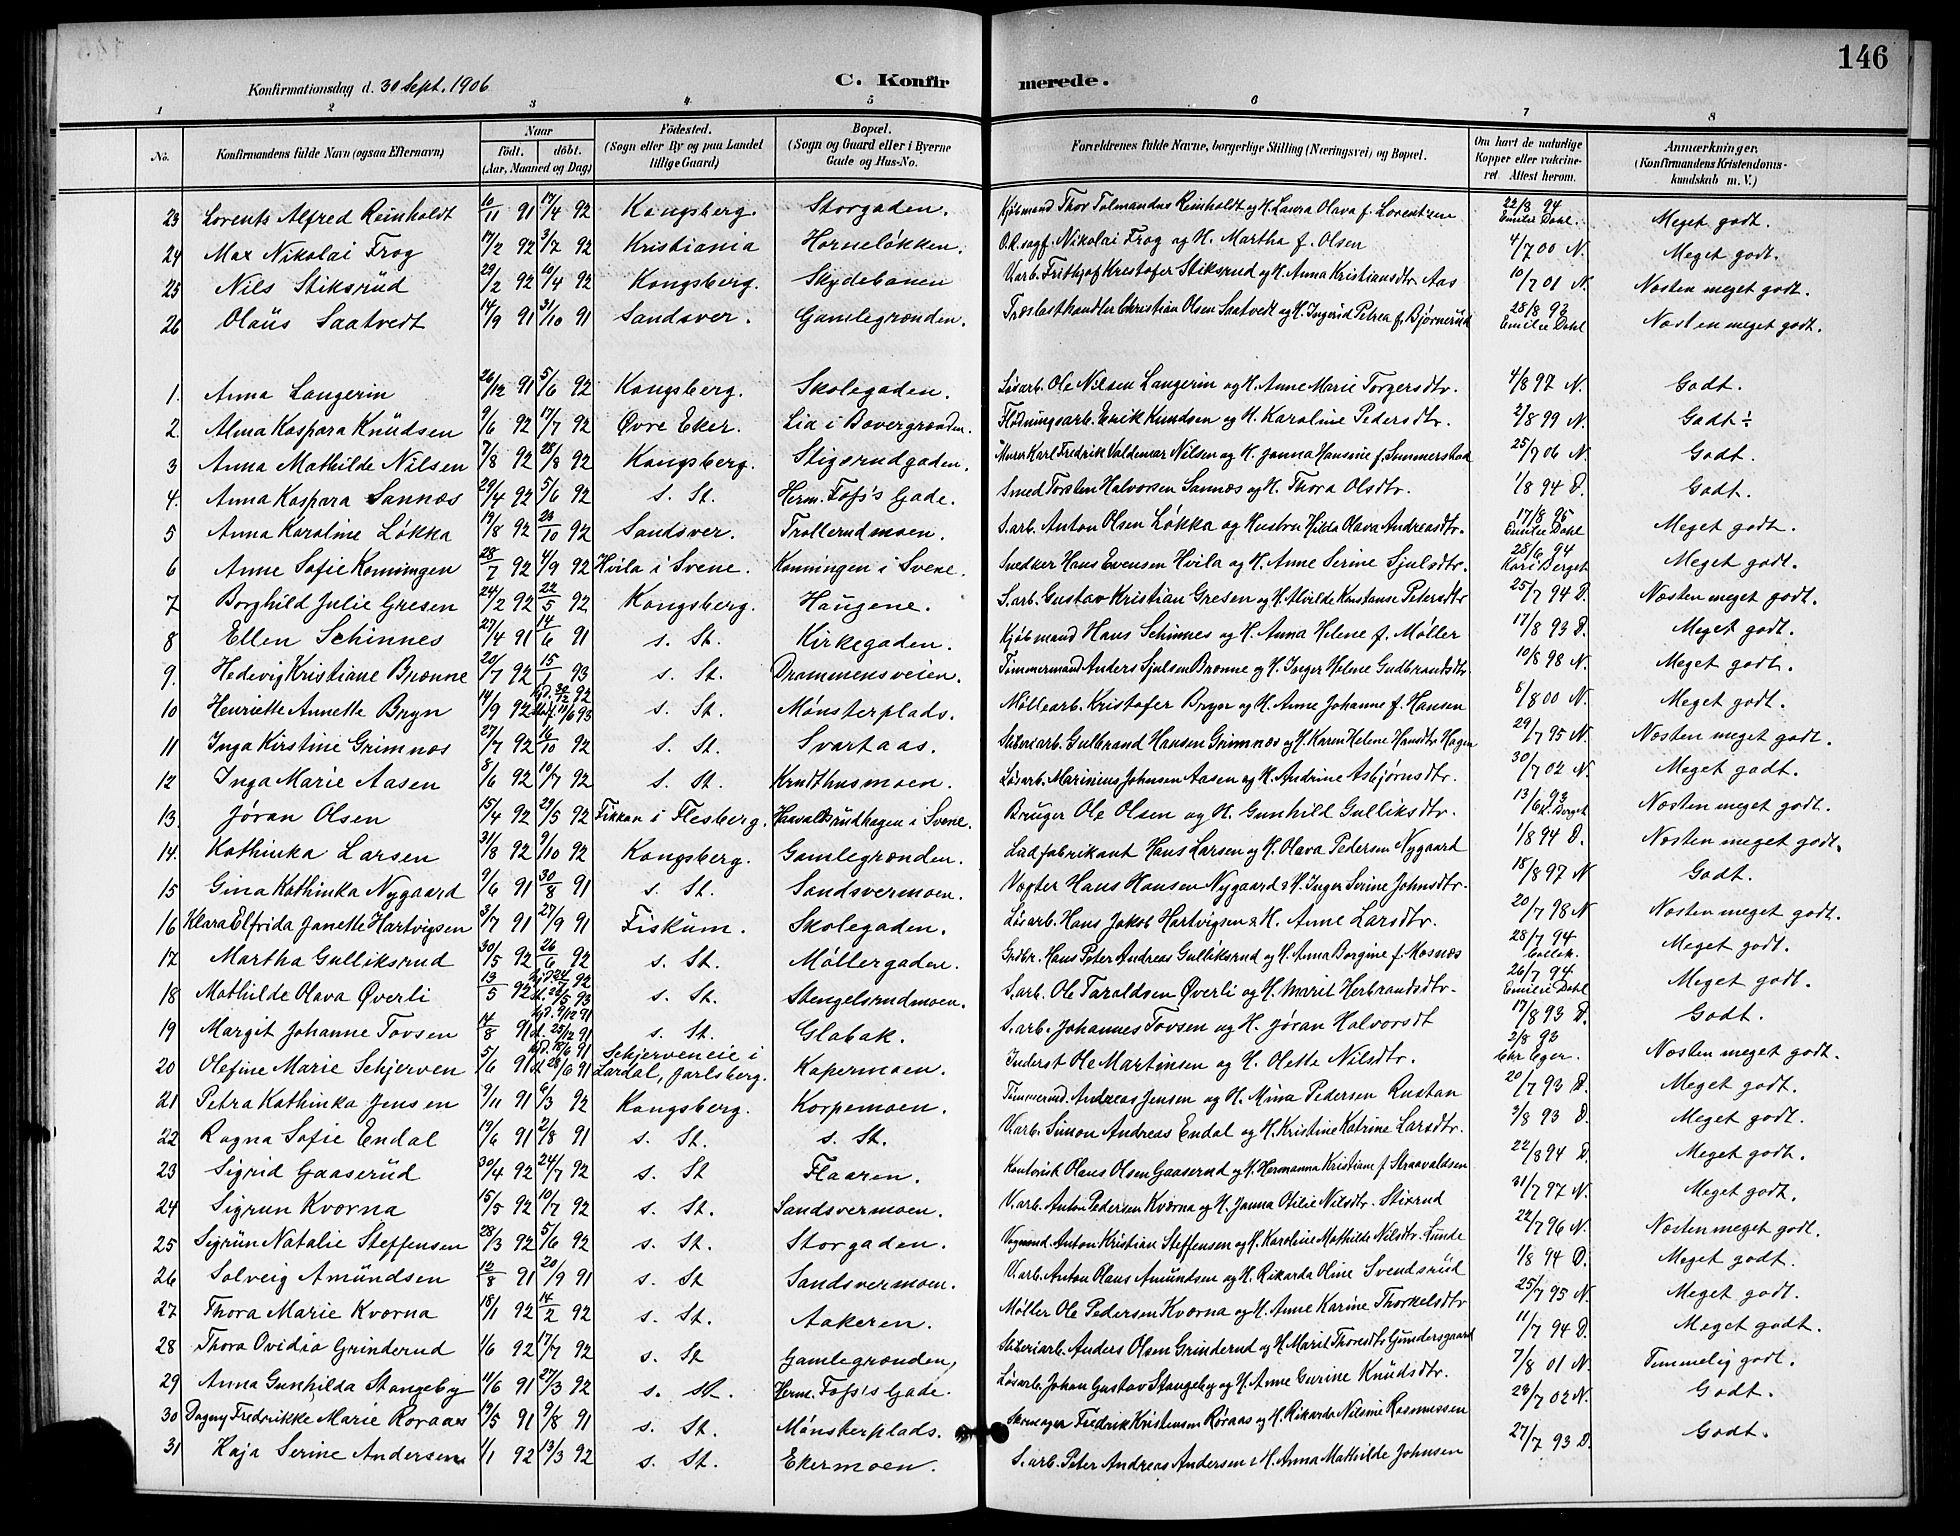 146
Konfirmationsdag d. 30 Sept. 1906
C. Konfirmerede.
1 2 3 4 5 6 7 8
No. Konfirmandens fulde Navn (ogsaa Efternavn) Naar født. døbt. (Aar, Maaned og Dag) Fødested. (Sogn eller By og paa Landet tillige Gaard) Bopæl. (Sogn og Gaard eller i Byerne Gade og Hus-No. Forældrenes fulde Navne, borgerlige Stilling (Næringsvei) og Bopæl. Om havt de naturlige Kopper eller vaccineret. Attest herom. Anmærkninger. (Konfirmandens Kristendomskundskab m. V.)
23 Lorents Alfred Reinholdt 10/11 91 17/4 92 Kongsberg. Storgaden. Kjøbmand Thor Tolmandus Reinholdt og H. Laura Olava f. Lorentzen 22/8 94 Emilie Dahl. Meget godt.
24 Max Nikolai Frog 17/2 92 3/7 92 Kristiania Horneløkken. O.R.sagf. Nikolai Frog og H. Martha f. Olsen 4/7 00 N. Meget godt.
25 Nils Stiksrud 29/2 92 10/4 92 Kongsberg. Skydebanen V.arb. Frithjof Krestofer Stiksrud og H. Anna Kristiansdtr. Aas 10/7 01 N. Næsten meget godt.
26 Olaus Saatvedt 14/9 91 31/10 91 Sandsver. Gamlegrænden. Trælasthandler Christian Olsen Saatvedt og H. Ingerid Petrea f. Bjørnerud 28/8 93 Emilie Dahl Næsten meget godt.
1. Anna Langerin 26/12 91 5/6 92 Kongsberg. Skolegaden. Løsarb. Ole Nilsen Langerin og H. Anne Marie Torgersdtr. 4/8 97 N. Godt.
2. Alma Kaspara Knudsen 9/6 92 17/7 92 Øvre Eker. Lia i Bævergrænden. Flødningsarb. Enrik Knudsen og H. Karoline Pedersdtr. 2/8 99 N. Godt ÷
3 Anna Mathilde Nilsen 7/8 92 28/8 92 Kongsberg. Stigsrudgaden. Murer Karl Fredrik Valdemar Nilsen og H. Janna Hansine f. Sommerstad 25/7 06 N. Godt.
4. Anna Kaspara Sannæs 29/4 92 5/6 92 s. St. Herm. Foss's Gade. Smed Torsten Halvorsen Sannæs og H. Thora Olsdtr. 1/8 94 D. Godt.
5 Anna Karoline Løkka 19/8 92 23/10 92 Sandsver. Trollerudmoen. S.arb. Anton Olsen Løkka og Hustru Hilda Olava Andreasdtr. 17/8 95 Emilie Dahl Meget godt.
6 Anne Sofie Konningen 28/7 92 4/9 92 Hvila i Svene. Konningen i Svene. Snedker Hans Evensen Hvila og H. Anne Serine Sjulsdtr. 28/6 94 Kari Berget Meget godt.
7 Borghild Julie Gresen 24/2 92 22/5 92 Kongsberg. Haugene. S.arb. Gustav Kristian Gresen og H. Alvilde Konstanse Petersdtr 25/7 94 D. Næsten meget godt.
8 Ellen Schinnes 27/4 91 14/6 91 s. St. Kirkegaden. Kjøbmand Hans Schinnes og H. Anna Helene f. Møller 17/8 93 D. Meget godt.
9. Hedevig Kristiane Brænne 20/7 92 15/1 93 s. St. Drammensveien. Timmermand Anders Sjulsen Brænne og H. Inger Helene Gudbrandsdtr 10/8 98 N. Meget godt.
10 Henriette Annette Bryn 14/9 92 Hjd. 30/12 92 11/6 93 s. St. Mønsterplads. Møllearb. Kristofer Bryn og H. Anne Johanne f. Hansen 8/8 00 N. Meget godt.
11 Inga Kirstine Grimnæs 27/7 92 16/10 92 s. St. Svartaas. Sliberiarb. Gulbrand Hansen Grimnæs og H. Karen Helene Hansdtr Hagen 29/7 95 N. Næsten meget godt.
12 Inga Marie Aasen 8/6 92 10/7 92 s. St. Krudthusmoen. Løsarb. Marinius Johnsen Aasen og H. Andrine Asbjørnsdtr. 30/7 02 N. Meget godt.
13. Jøran Olsen 15/4 92 29/5 92 Fikkan i Flesberg. Haavaldsrudhagen i Svene. Bruger Ole Olsen og H. Gunhild Gulliksdtr. 13/6 93 K. Berget Næsten meget godt.
14. Kathinka Larsen 31/8 92 9/10 92 Kongsberg. Gamlegrænden. Ladfabrikant Hans Larsen og H. Olava Pedersen Nygaard 1/8 94 D. Næsten meget godt.
15 Gina Kathinka Nygaard 9/6 91 30/8 91 s. St. Sandsvermoen. Vagter Hans Hansen Nygaard & H. Inger Serine Johnsdtr. 18/8 97 N Godt.
16 Klara Elfrida Janette Hartvigsen 3/7 91 27/9 91 Fiskum. Skolegaden. Løsarb. Hans Jakob Hartvigsen & H. Anne Larsdtr. 20/7 98 N Næsten meget godt.
17 Martha Gulliksrud 30/5 92 26/6 92 s. St. Møllergaden. Grdbr. Hans Peter Andreas Gulliksrud og H. Anna Borgine f. Mosnæs 28/7 94 Meget godt.
18 Mathilde Olava Øverli 13/5 92 Hjd. 24/7 92 St. 28/5 93 s. St. Stengelsrudmoen. S.arb. Ole Taraldsen Øverli og H. Marit Herbrandsdtr. 26/7 94 Emilie Dahl Meget godt.
19 Margit Johanne Tovsen 14/8 91 Hjd. 9/12 91 st. 25/12 91 s. St. Glabak. S.arb. Johannes Tovsen og H. Jøran Halvorsdt 17/8 93 D. Godt.
20 Olefine Marie Schjerven 5/6 91 Hjd. 18/6 91 st 28/6 91 Schjerveneie i Lardal, Jarlsberg. Kapermoen. Inderst Ole Martinsen og H. Olette Nilsdtr. 3/8 93 Chr Eger. Næsten meget godt.
21 Petra Kathinka Jensen 9/11 91 6/3 92 Kongsberg. Korpemoen. Tømmermd. Andreas Jensen og H. Mina Pedersen Rustan 20/7 93 D. Meget godt.
22 Ragna Sofie Endal 19/6 91 2/8 91 s. St. s. St. V.arb. Simon Andreas Endal og H. Kristine Katrine Larsdtr. 3/8 93 D. Meget godt.
23 Sigrid Gaaserud 30/4 92 24/7 92 s. St Flaaren. Kontorist Olaus Olsen Gaaserud og H. Hermanna Kristiane f. Straavaldsen 22/8 94 D. Meget godt.
24 Sigrun Kværna 15/5 92 10/7 92 s. St. Sandsvermoen. V.arb. Anton Pedersen Kværna og H. Janna Otilie Nilsdtr. Stixrud 31/7 97 N. Meget godt.
25 Sigrun Natalie Steffensen 28/3 92 5/6 92 s. St. Storgaden. Vognmd. Anton Kristian Steffensen og H. Karoline Mathilde Nilsdtr. Lunde 22/7 96 N. Næsten meget godt.
26 Solveig Amundsen 12/8 91 20/9 91 s. St Sandsvermoen. V.arb. Anton Olaus Amundsen og H. Rikarda Oline Svendsrud 1/8 94 D. Meget godt.
27 Thora Marie Kværna 18/1 92 14/2 92 s. St. Aakeren. Møller Ole Pedersen Kværna og H. Anne Karine Thorkelsdtr 25/7 95 N. Meget godt.
28 Thora Ovidia Grinderud 1/6 92 17/7 92 s. St Gamlegrænden, Sliberiarb. Anders Olsen Grinderud og H. Marit Thoresdtr Gundersgaard 11/7 94 D. Meget godt.
29 Anna Gunhilda Stangeby 11/6 91 27/3 92 s. St. Herm. Foss's Gade. Løsarb. Johan Gustav Stangeby og H. Anne Gurine Knudsdtr. 7/8 01 N. Temmelig godt.
30 Dagny Fredrikke Marie Roraas 19/5 91 9/8 91 s. St. Mønsterplads. Skomager Fredrik Kristensen Røraas og H. Rikarda Nilsine Rasmussen 23/7 02 N. Godt.
31 Kaja Serine Andersen 1/1 92 13/3 92 s. St. Ekermoen. S.arb. Peter Andreas Andersen & H. Anna Mathilde Johnsen 27/7 93 D. Godt.